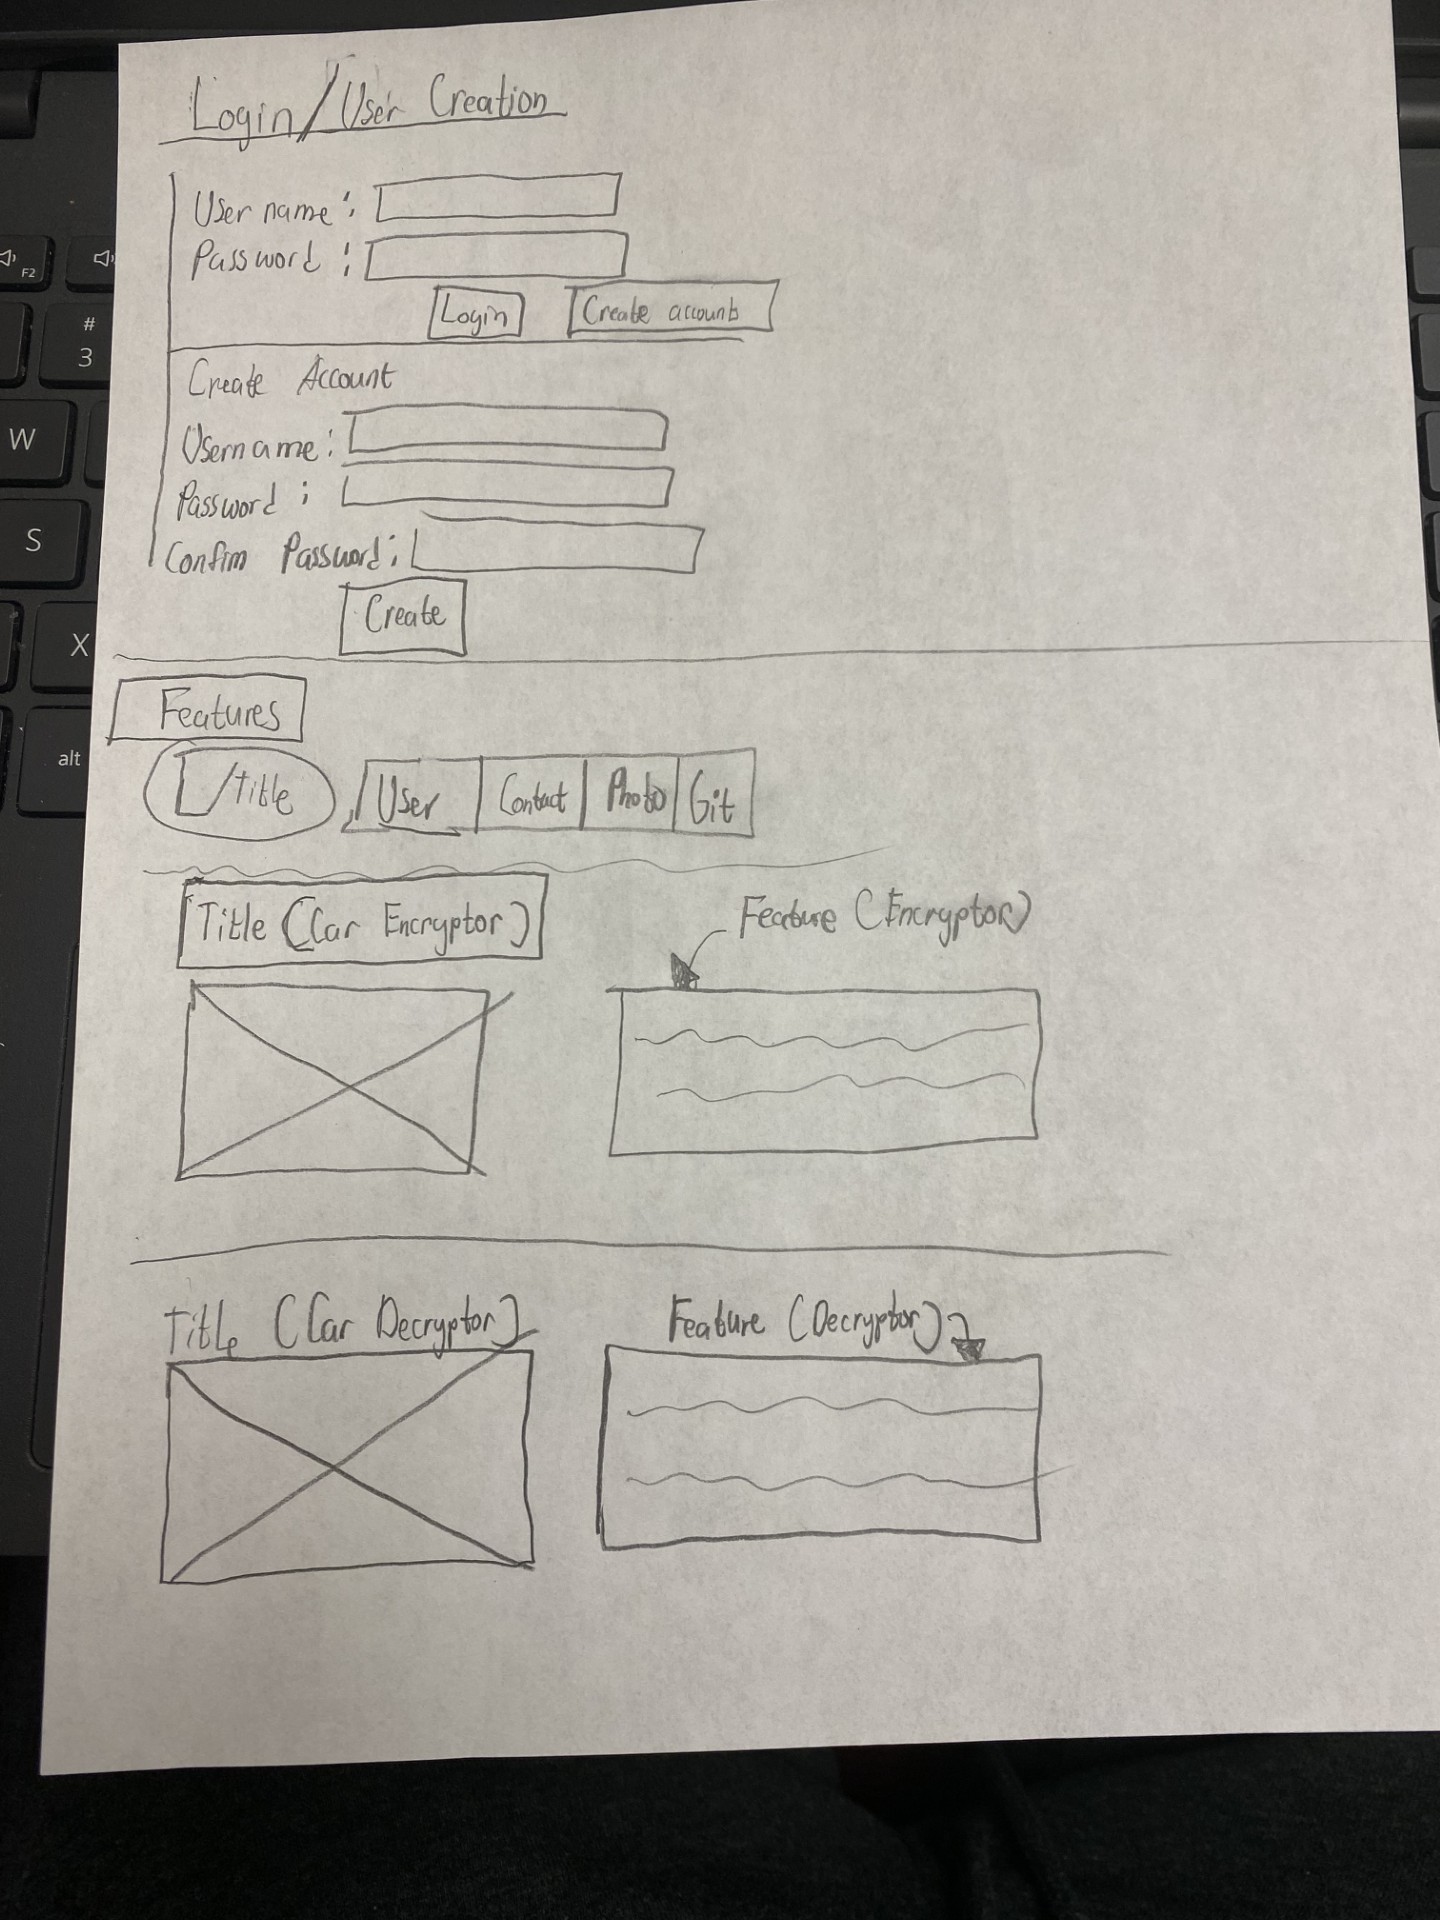 Login/User Creation
Username:
Password:
Login Create account
Create Account
Username:
Password:
Confim Password:
Create
Features
/Title User Contact Photo Git
Title (Car Encryptor) Feature (Encryptor)
Title (Car Decryptor) Feature (Decryptor)
F2
#
3
W
S
X
alt